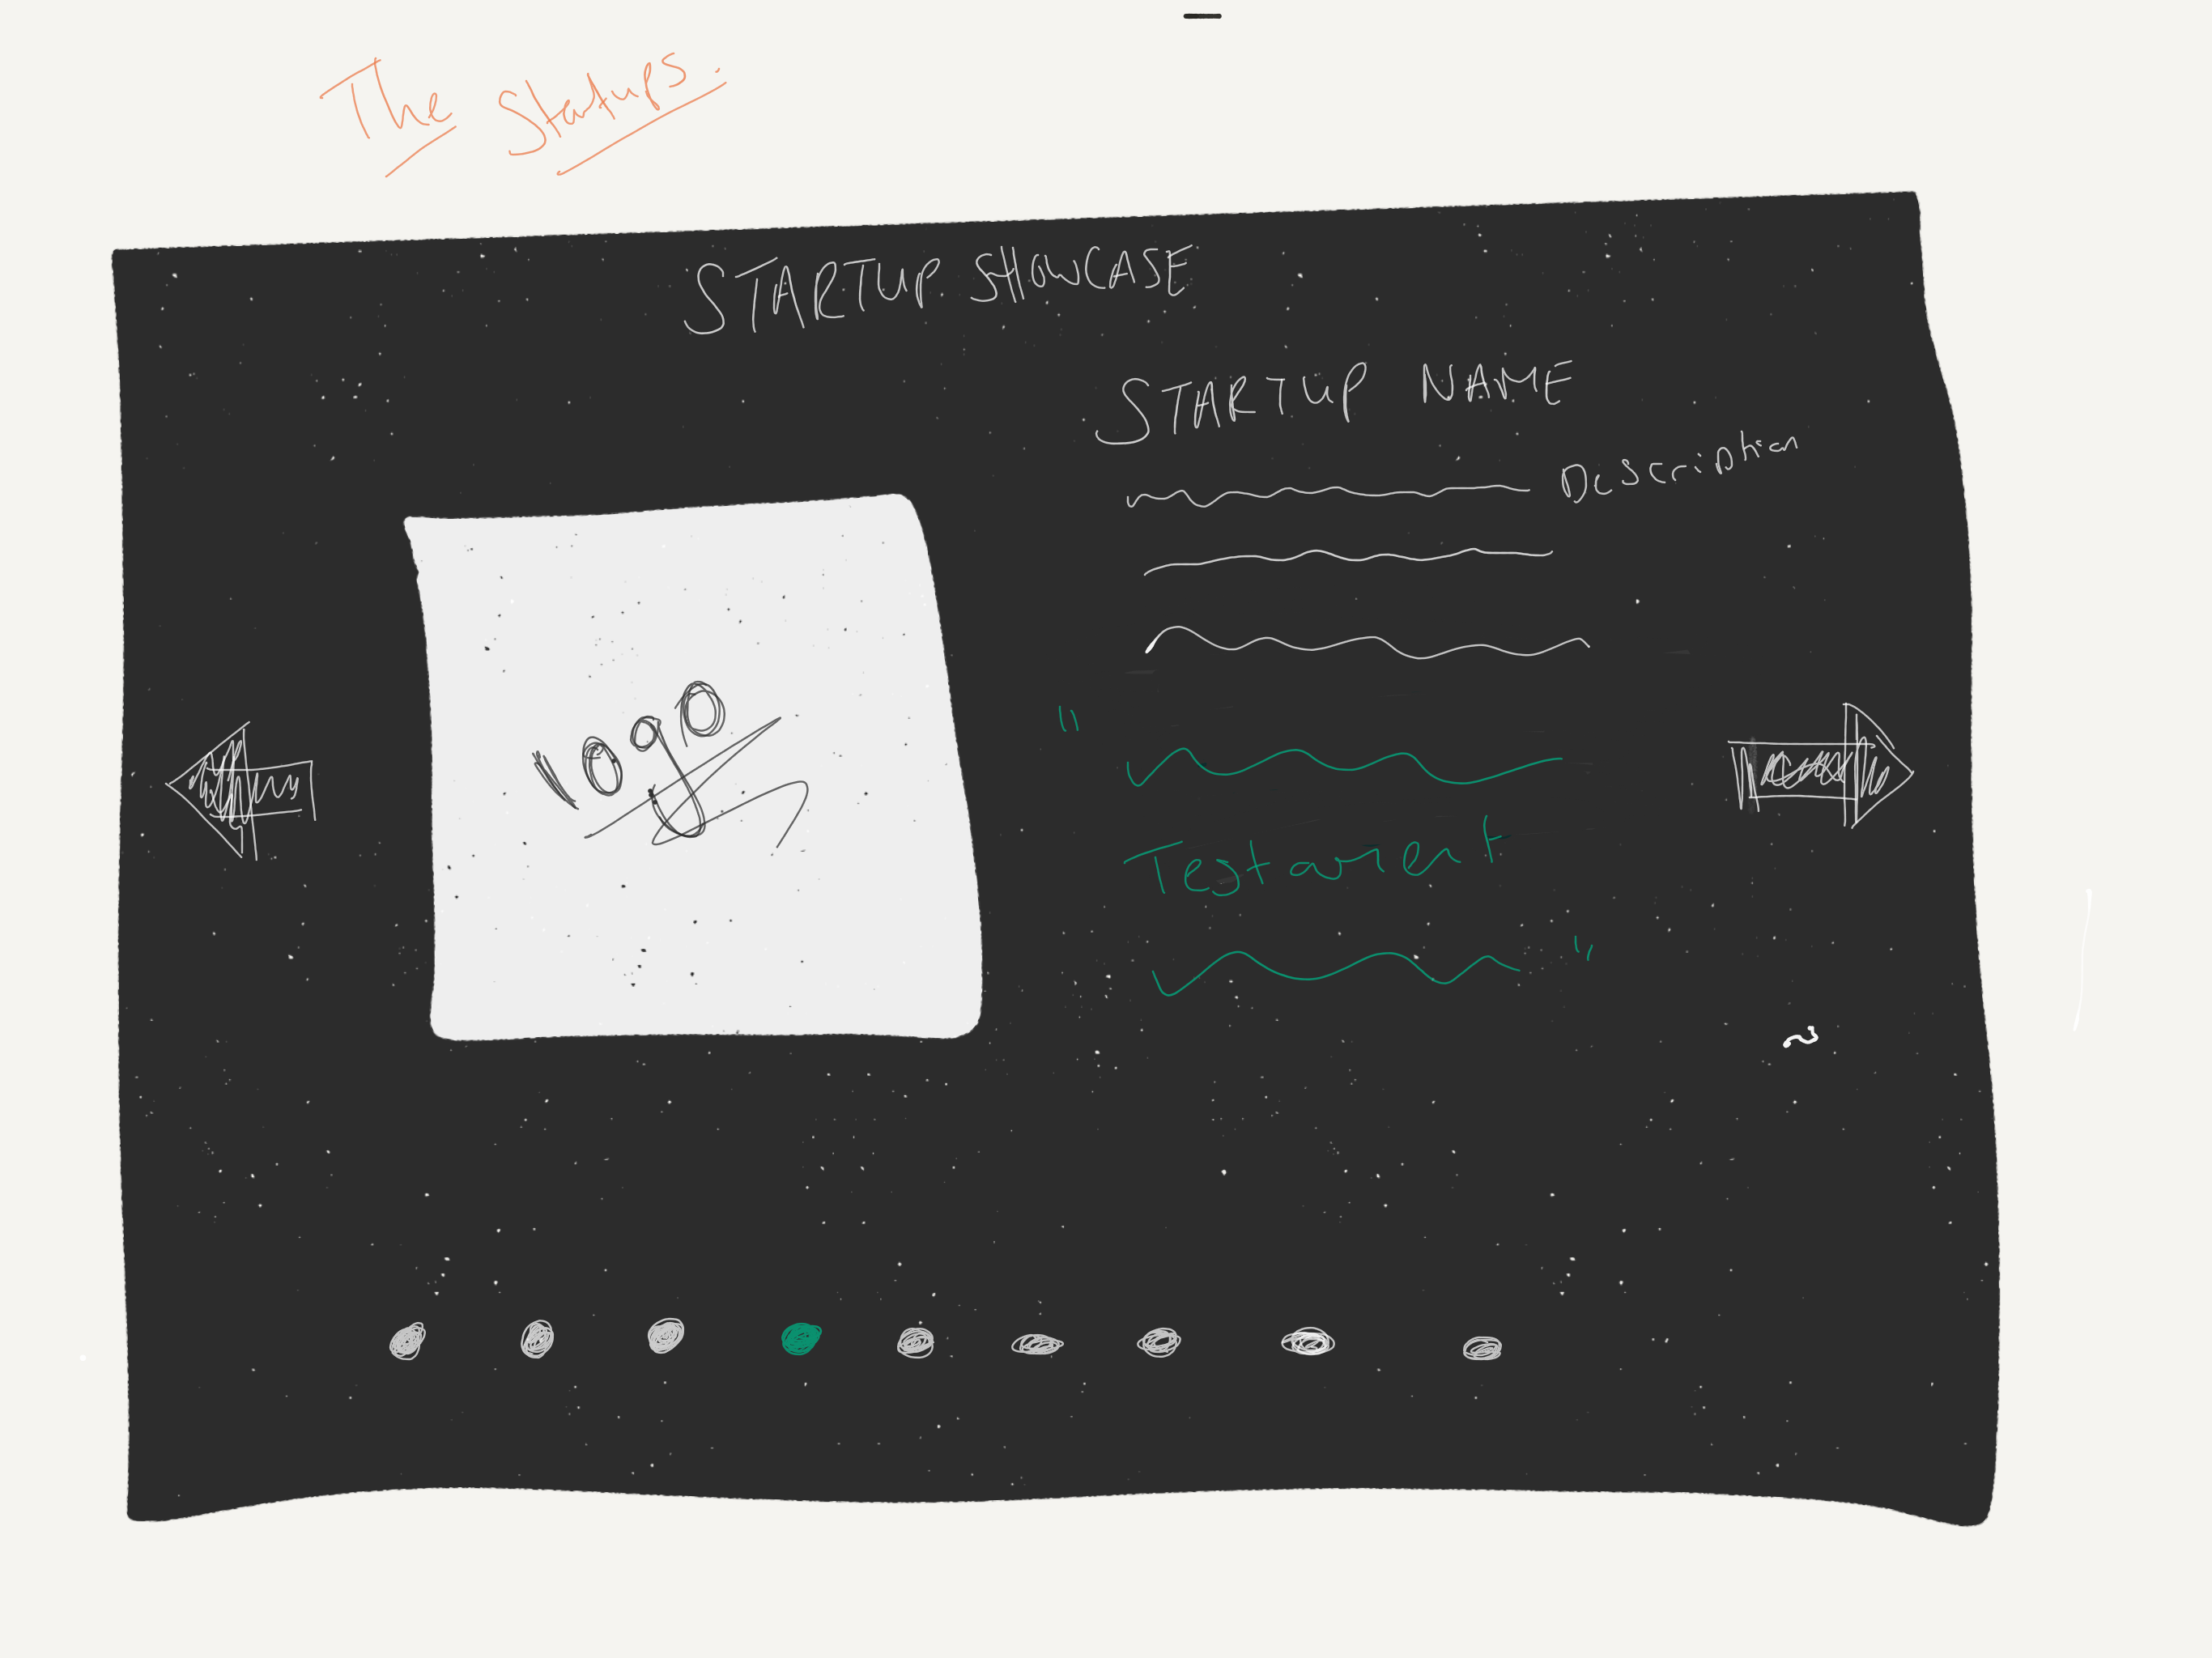 The Startups.
STARTUP SHOWCASE
STARTUP NAME
Description
logo
"
Testament
"